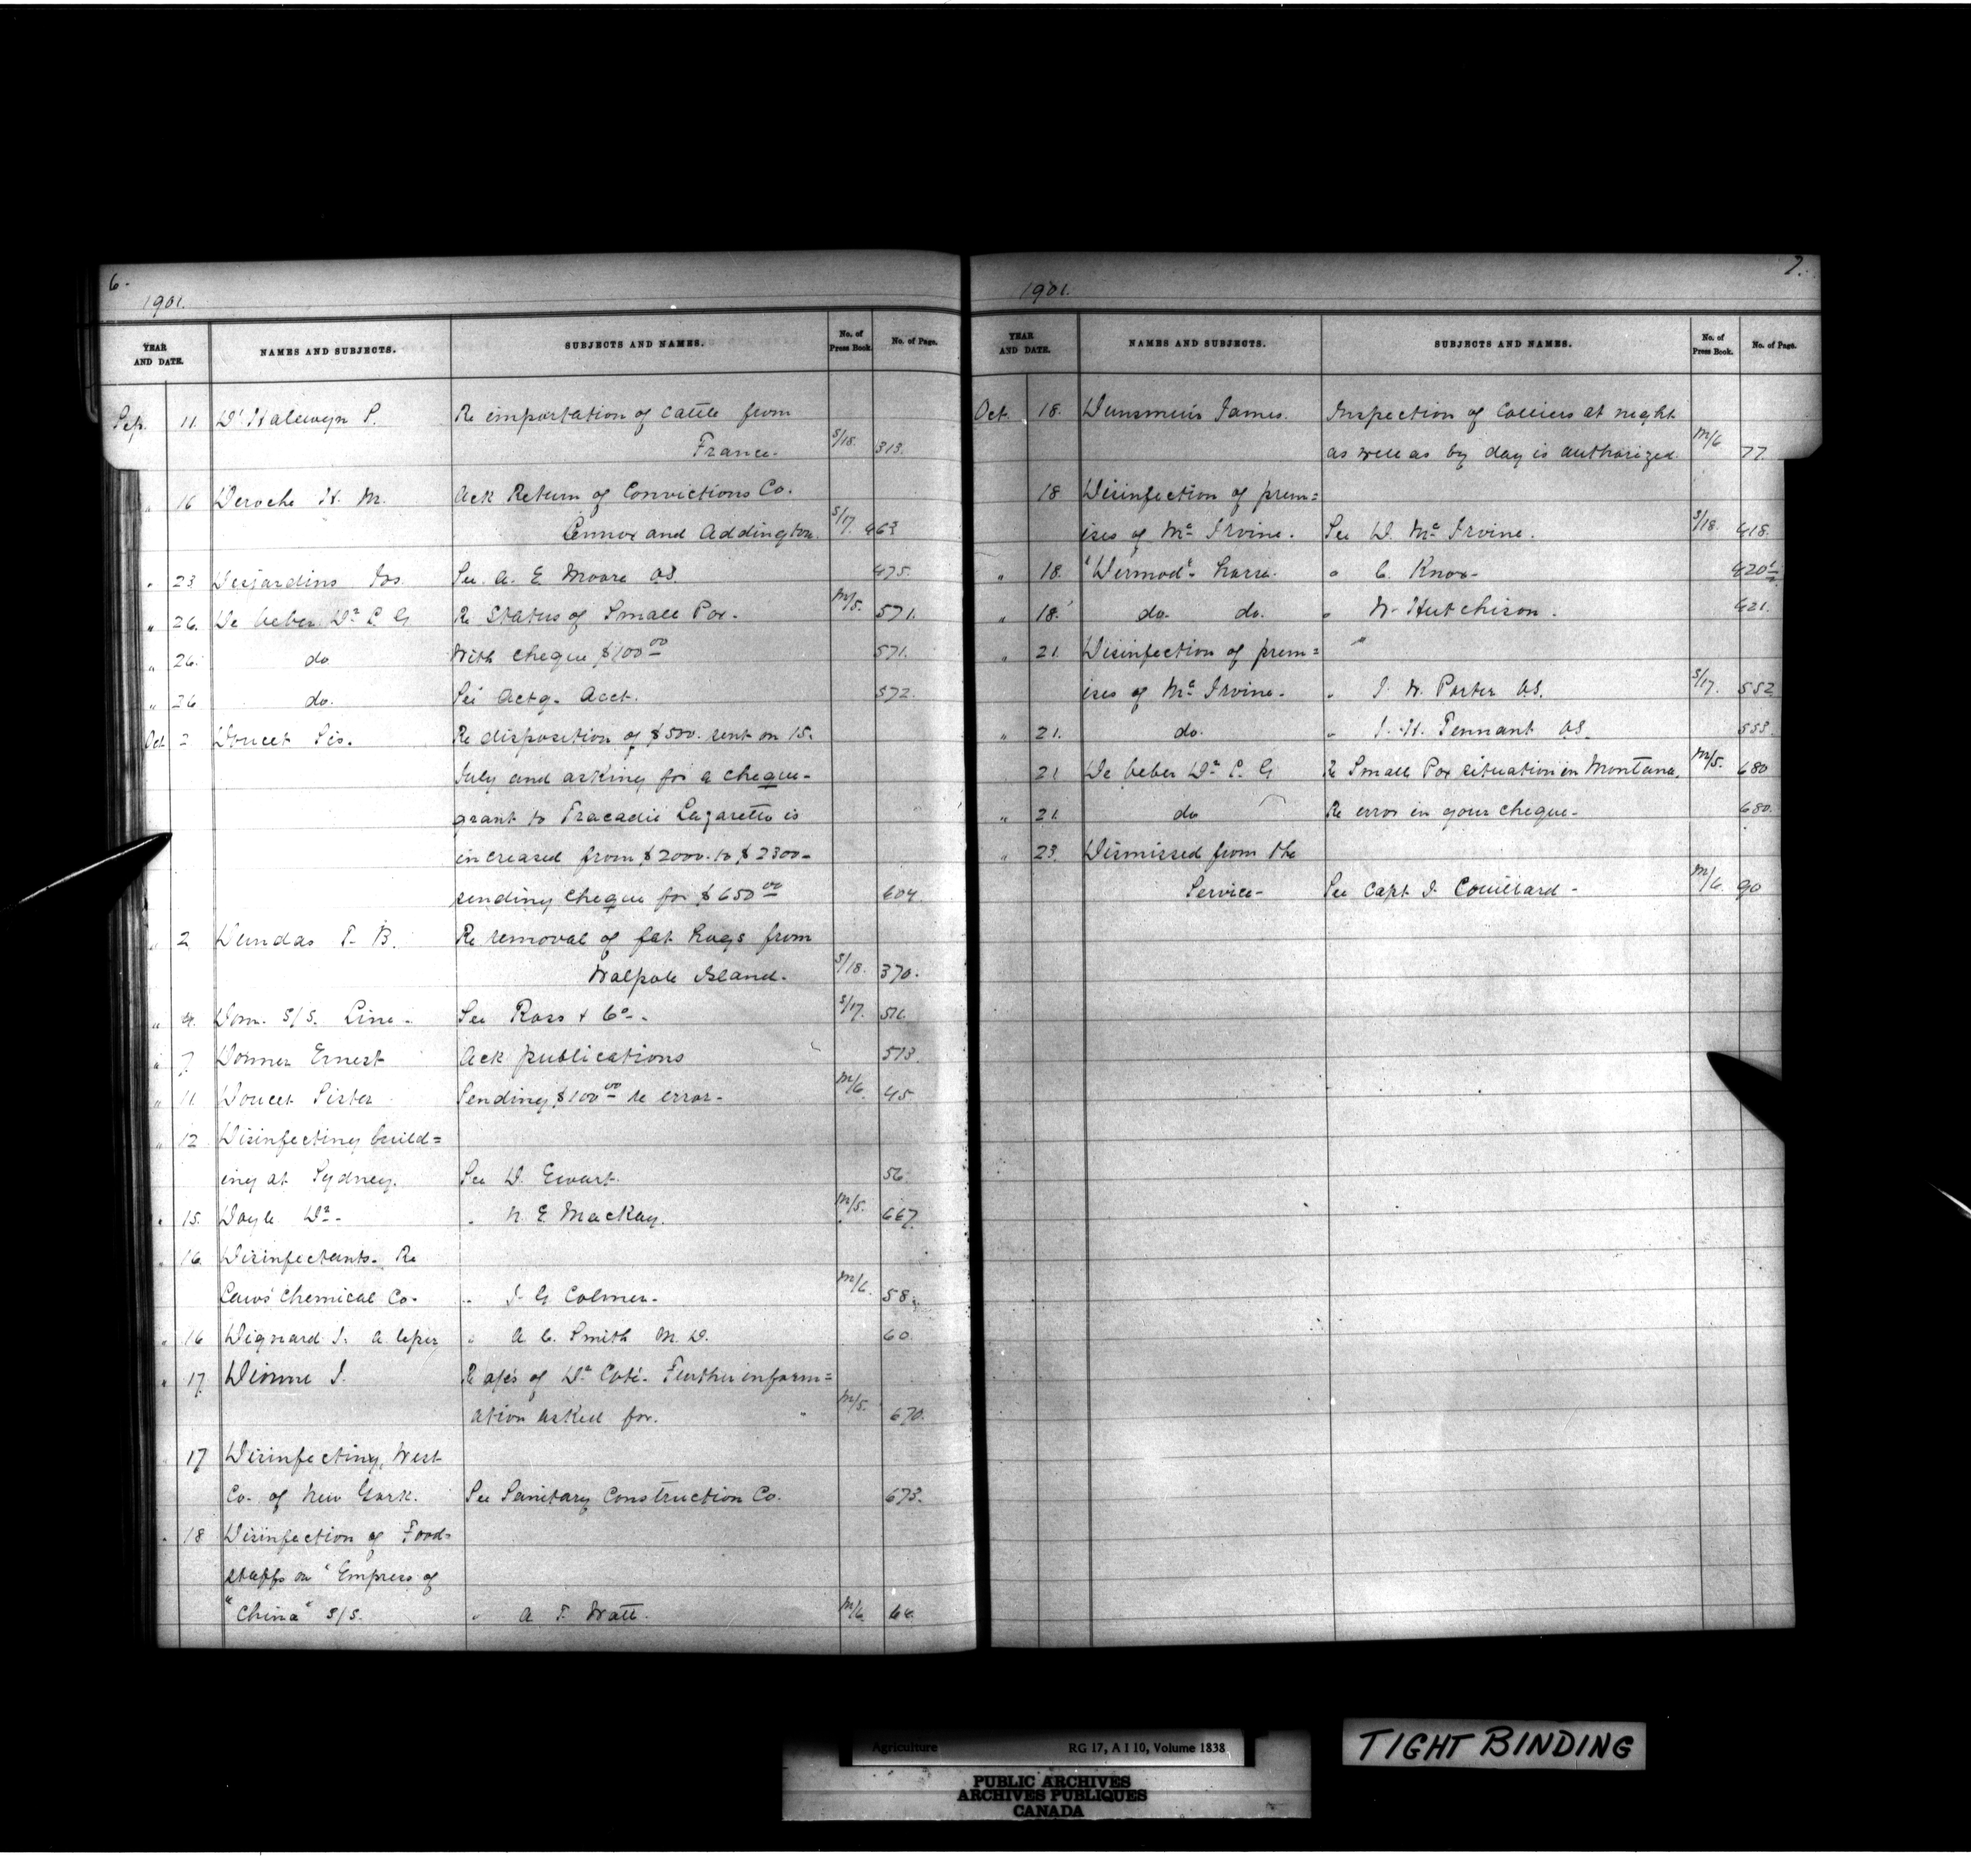 6.
1901.
YEAR AND DATE. NAMES AND SUBJECTS. SUBJECTS AND NAMES. No. of Press Book. No. of Page.
Sep. 11. D'Halewyn P. Re importation of cattle from
France. S/18. 313.
" 16 Deroche H. M. Ack Return of Convictions Co.
Lennox and Addington. S/17. 463
" 23 Desjardins Jos. See A. E. Moore VS. 475.
" 26. De Veber Dr L. G Re Status of Small Pox. M/5. 571.
" 26. do With cheque $100 00 571.
" 26 do. See Actg. Acct. 572.
Oct 2 Doucet Sis. Re disposition of $500. sent on 15.
July and asking for a cheque-
grant to Tracadie Lazaretto is
increased from $2000. to $2300-
sending cheque for $650 00 604.
" 2 Dundas T. B. Re removal of fat hogs from
Walpole Island. S/18. 370.
" 4. Dom. S/S. Line - See Ross & Co -. S/17.
" 7 Dormer Ernest Ack publications 513.
" 11. Doucet Sister Sending $100 00 re error- M/6. 45
" 12 Disinfecting build=
ing at Sydney. See D. Ewart. 56
" 15. Doyle Dr - " N. E. MacKay. M/5. 667.
" 16. Disinfectants. Re
Laws' Chemical Co. " J. G Colmer. M/6. 58.
" 16 Dignard J. a leper " A. C. Smith M. D. 60.
" 17 Dionne J. Re a/cs of Dr Coté. Further inform=
ation asked for. M/5. 670.
17 Disinfecting, West
Co. of New York. See Sanitary Construction Co. 673.
" 18 Disinfection of Food=
stuffs on "Empress of
"China" S/S. " A. T. Watt. M/6. 64.
7.
1901.
YEAR AND DATE. NAMES AND SUBJECTS. SUBJECTS AND NAMES. No. of Press Book. No. of Page.
Oct. 18. Dunsmuir James. Inspection of Colliers at night
as well as by day is authorized M/6 77.
18 Disinfection of prem=
ises of Mc Irvine. See D. Mc Irvine. S/18. 418.
" 18. "Dermod" horse. " C. Knox- 420½
" 18. do. do. " W. Hutchison. 421.
" 21. Disinfection of prem= "
ises of Mc Irvine. " J. W. Porter VS. S/17. 552
" 21. do. " J. H. Tennant VS. 553.
21 De Veber Dr L. G Re Small Pox situation in Montana. M/5. 680
" 21. do Re error in your cheque- 680.
" 23. Dismissed from the
Service- See Capt J. Couillard - M/6. 90
Agriculture RG 17, A I 10, Volume 1838
PUBLIC ARCHIVES
ARCHIVES PUBLIQUES
CANADA
TIGHT BINDING